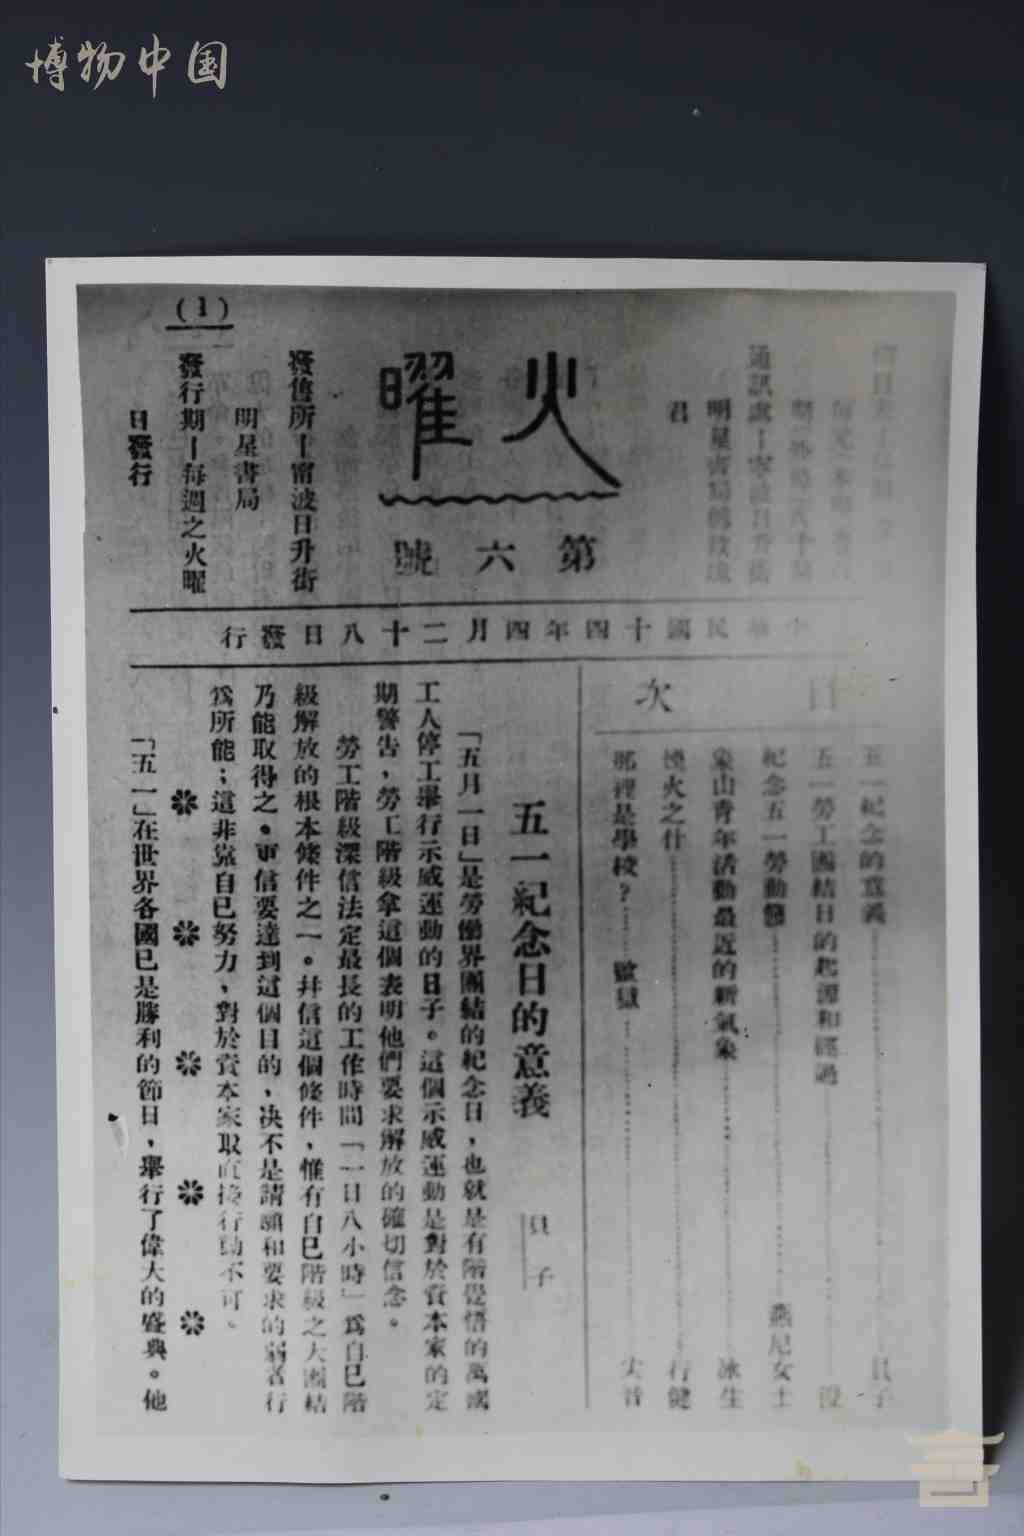 博物中国
(1)
通訊處—寗波日升街
明星書局
君
火曜
第六號
發售所—甯波日升街
明星書局
發行期—每週之火曜
日發行
中華民國十四年四月二十八日發行
目次
五一紀念的意義 貝子
五一勞工團結日的起源和經過
紀念五一勞動節 燕尼女士
象山青年活動最近的新氣象 冰生
燐火之什 行健
那裡是學校? 尖音
五一紀念日的意義 貝子
「五月一日」是勞働界團結的紀念日，也就是有階覺悟的萬或
工人停工舉行示威運動的日子。這個示威運動是對於資本家的定
期警告，勞工階級拿這個表明他們要求解放的確切信念。
勞工階級深信法定最長的工作時間「一日八小時」爲自已階
級解放的根本條件之一。幷信這個條件，惟有自已階級之大團結
乃能取得之。更信要達到這個目的，决不是請願和要求的弱者行
爲所能；這非靠自已努力，對於資本家取直接行動不可。
「五一」在世界各國已是勝利的節日，舉行了偉大的盛典。他